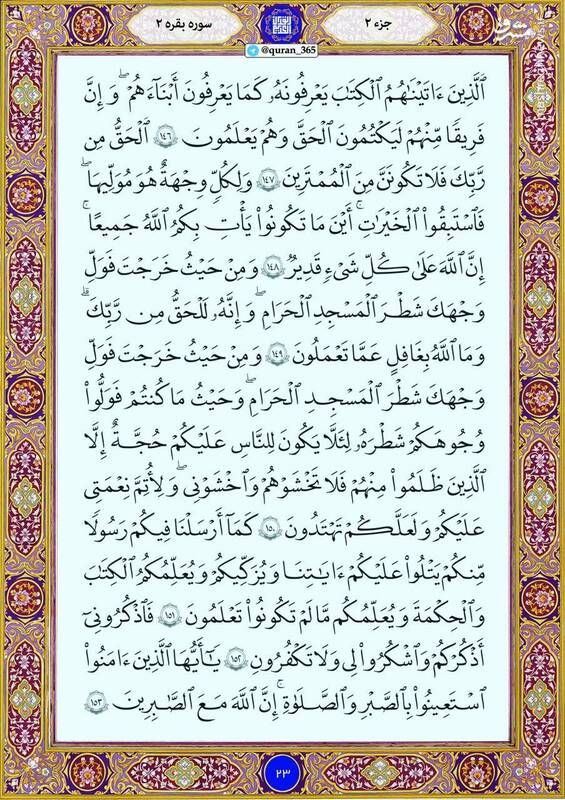 جزء ۲
سوره بقره ۲
@quran_365
ٱلَّذِينَ ءَاتَيْنَٰهُمُ ٱلْكِتَٰبَ يَعْرِفُونَهُۥ كَمَا يَعْرِفُونَ أَبْنَآءَهُمْ ۖ وَإِنَّ
فَرِيقًا مِّنْهُمْ لَيَكْتُمُونَ ٱلْحَقَّ وَهُمْ يَعْلَمُونَ ۝١٤٦ ٱلْحَقُّ مِن
رَّبِّكَ فَلَا تَكُونَنَّ مِنَ ٱلْمُمْتَرِينَ ۝١٤٧ وَلِكُلٍّ وِجْهَةٌ هُوَ مُوَلِّيهَا ۖ
فَٱسْتَبِقُوا۟ ٱلْخَيْرَٰتِ ۚ أَيْنَ مَا تَكُونُوا۟ يَأْتِ بِكُمُ ٱللَّهُ جَمِيعًا ۚ
إِنَّ ٱللَّهَ عَلَىٰ كُلِّ شَىْءٍ قَدِيرٌ ۝١٤٨ وَمِنْ حَيْثُ خَرَجْتَ فَوَلِّ
وَجْهَكَ شَطْرَ ٱلْمَسْجِدِ ٱلْحَرَامِ ۖ وَإِنَّهُۥ لَلْحَقُّ مِن رَّبِّكَ ۗ
وَمَا ٱللَّهُ بِغَٰفِلٍ عَمَّا تَعْمَلُونَ ۝١٤٩ وَمِنْ حَيْثُ خَرَجْتَ فَوَلِّ
وَجْهَكَ شَطْرَ ٱلْمَسْجِدِ ٱلْحَرَامِ ۚ وَحَيْثُ مَا كُنتُمْ فَوَلُّوا۟
وُجُوهَكُمْ شَطْرَهُۥ لِئَلَّا يَكُونَ لِلنَّاسِ عَلَيْكُمْ حُجَّةٌ إِلَّا
ٱلَّذِينَ ظَلَمُوا۟ مِنْهُمْ فَلَا تَخْشَوْهُمْ وَٱخْشَوْنِى وَلِأُتِمَّ نِعْمَتِى
عَلَيْكُمْ وَلَعَلَّكُمْ تَهْتَدُونَ ۝١٥٠ كَمَآ أَرْسَلْنَا فِيكُمْ رَسُولًا
مِّنكُمْ يَتْلُوا۟ عَلَيْكُمْ ءَايَٰتِنَا وَيُزَكِّيكُمْ وَيُعَلِّمُكُمُ ٱلْكِتَٰبَ
وَٱلْحِكْمَةَ وَيُعَلِّمُكُم مَّا لَمْ تَكُونُوا۟ تَعْلَمُونَ ۝١٥١ فَٱذْكُرُونِىٓ
أَذْكُرْكُمْ وَٱشْكُرُوا۟ لِى وَلَا تَكْفُرُونِ ۝١٥٢ يَٰٓأَيُّهَا ٱلَّذِينَ ءَامَنُوا۟
ٱسْتَعِينُوا۟ بِٱلصَّبْرِ وَٱلصَّلَوٰةِ ۚ إِنَّ ٱللَّهَ مَعَ ٱلصَّٰبِرِينَ ۝١٥٣
۲۳